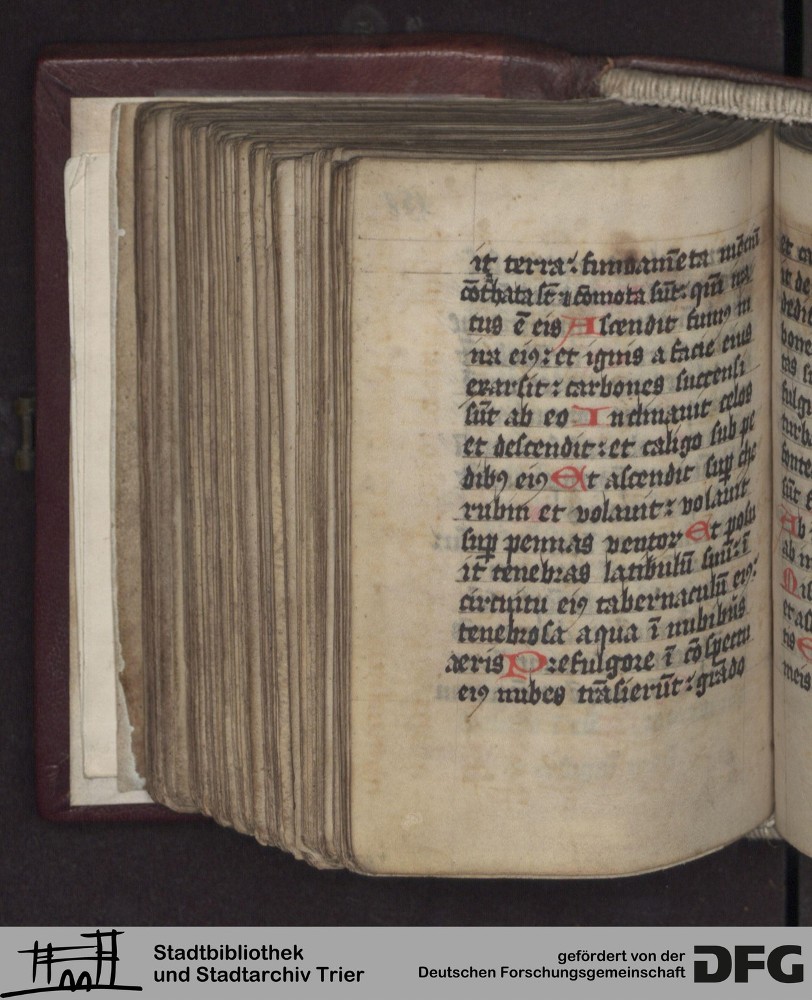 it terra: fundamēta mōtiū
cōtbata sūt ⁊ cōmota sūt: qm̄ ira
tus ē eis Ascendit fumꝰ in
ira eiꝰ: et ignis a facie eius
exarsit: carbones succensi
sūt ab eo Inclinauit celos
et descendit: et caligo sub pe
dibꝰ eiꝰ Et ascendit suꝑ che
rubin et volauit: volauit
suꝑ pennas ventoꝝ Et posu
it tenebras latibulū suū: ī
circuitu eiꝰ tabernaculū eiꝰ:
tenebrosa aqua ī nubibus
aeris Prefulgore ī cōspectu
eiꝰ nubes trāsierūt: grādo
Stadtbibliothek
und Stadtarchiv Trier
gefördert von der
Deutschen Forschungsgemeinschaft
DFG